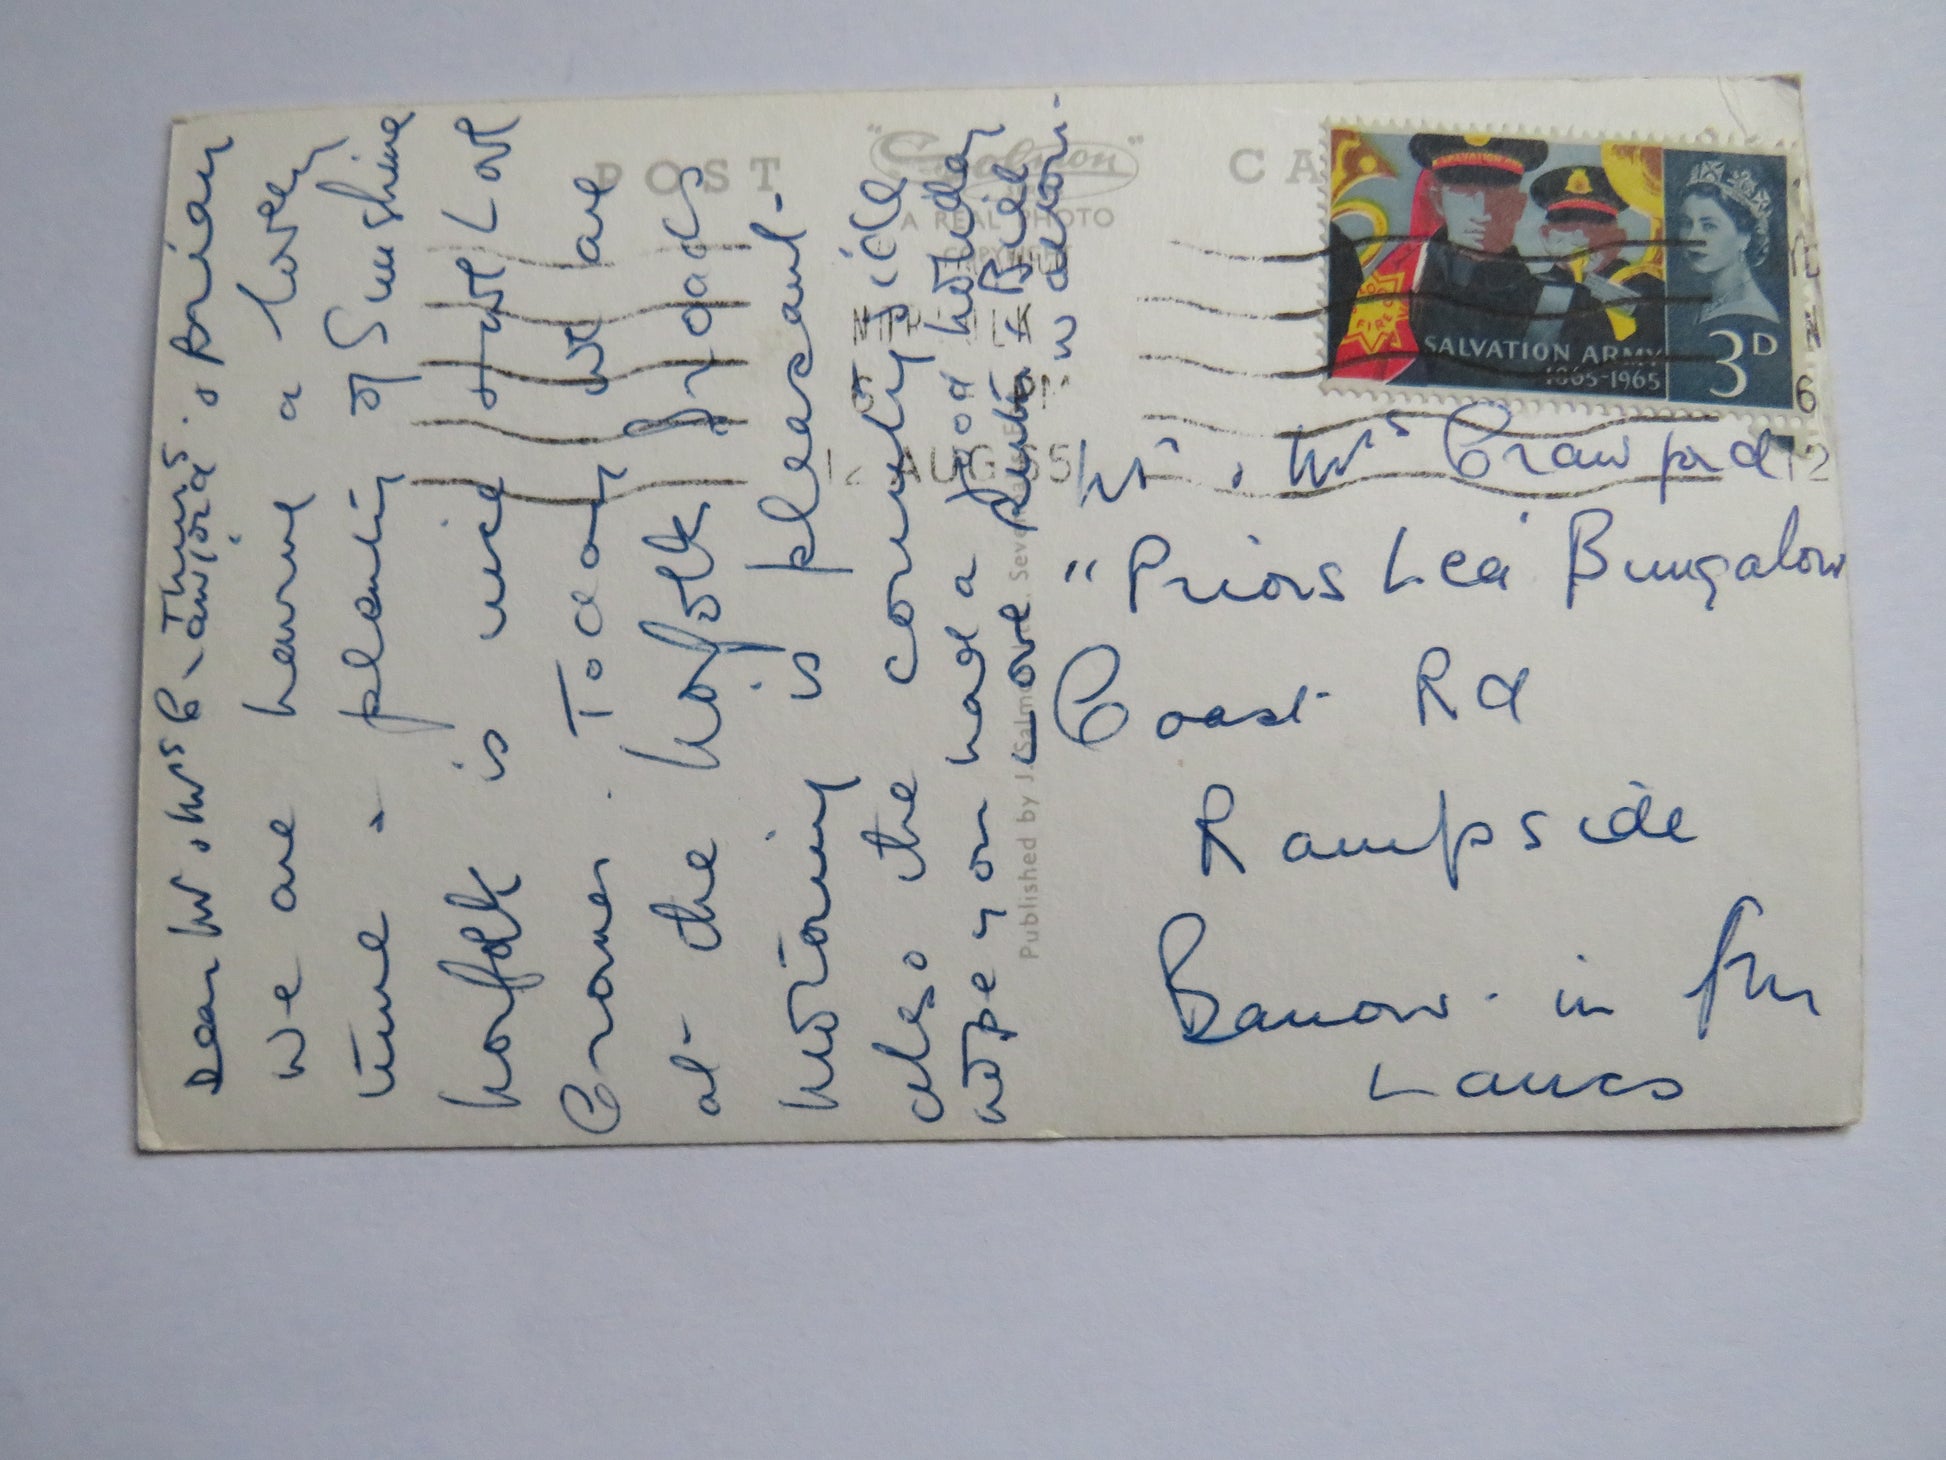 Dear Mr & Mrs Crawford & Brian
Thurs.
We are having a lovely
time & plenty of Sunshine
Norfolk is nice + not
Cromer. Today we are
at the Norfolk Broads
Motoring is pleasant
also the countryside
hope you had a good holiday
Love Ruth & Bill
POST CA
A REAL PHOTO
COPYRIGHT
Published by J. Salmon
AUG
SALVATION ARMY
1865-1965
3D
Mr & Mrs Crawford
"Priors Lea" Bungalow
Coast Rd
Rampside
Barrow. in Fur
Lancs